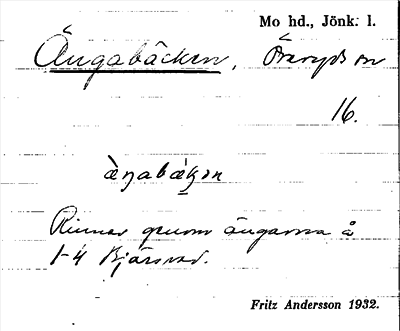 Mo hd., Jönk. l.
Ängabäcken, Öreryds sn
16.
ὰŋabækən
Rinner genom ängarna å
1-4 Bjärsved.
Fritz Andersson 1932.